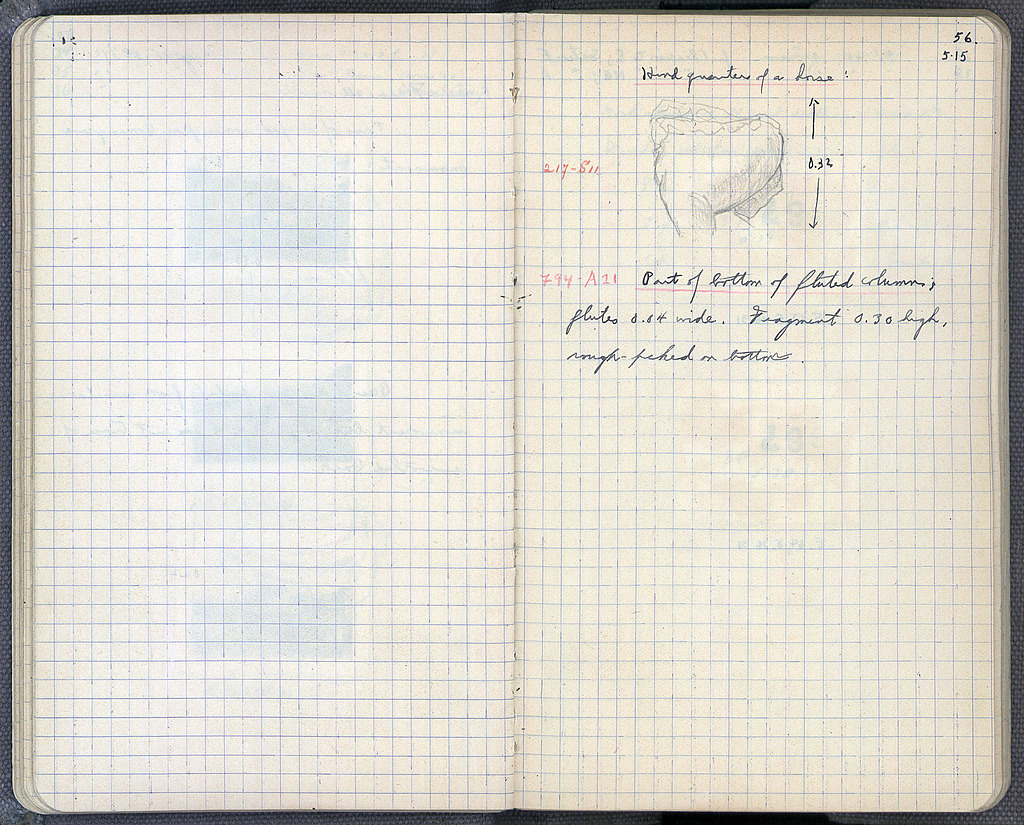 56.
5·15
Hind quarters of a horse:
0.32
217-S11
794-A21 Part of bottom of fluted column;
flutes 0.04 wide. Fragment 0.30 high,
rough-picked on bottom.